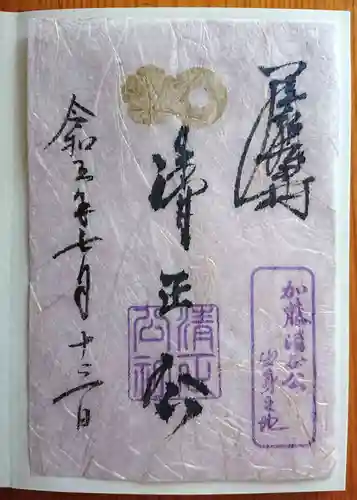 加藤清正公
出身之地
清正公
清正公社
令和五年七月十三日